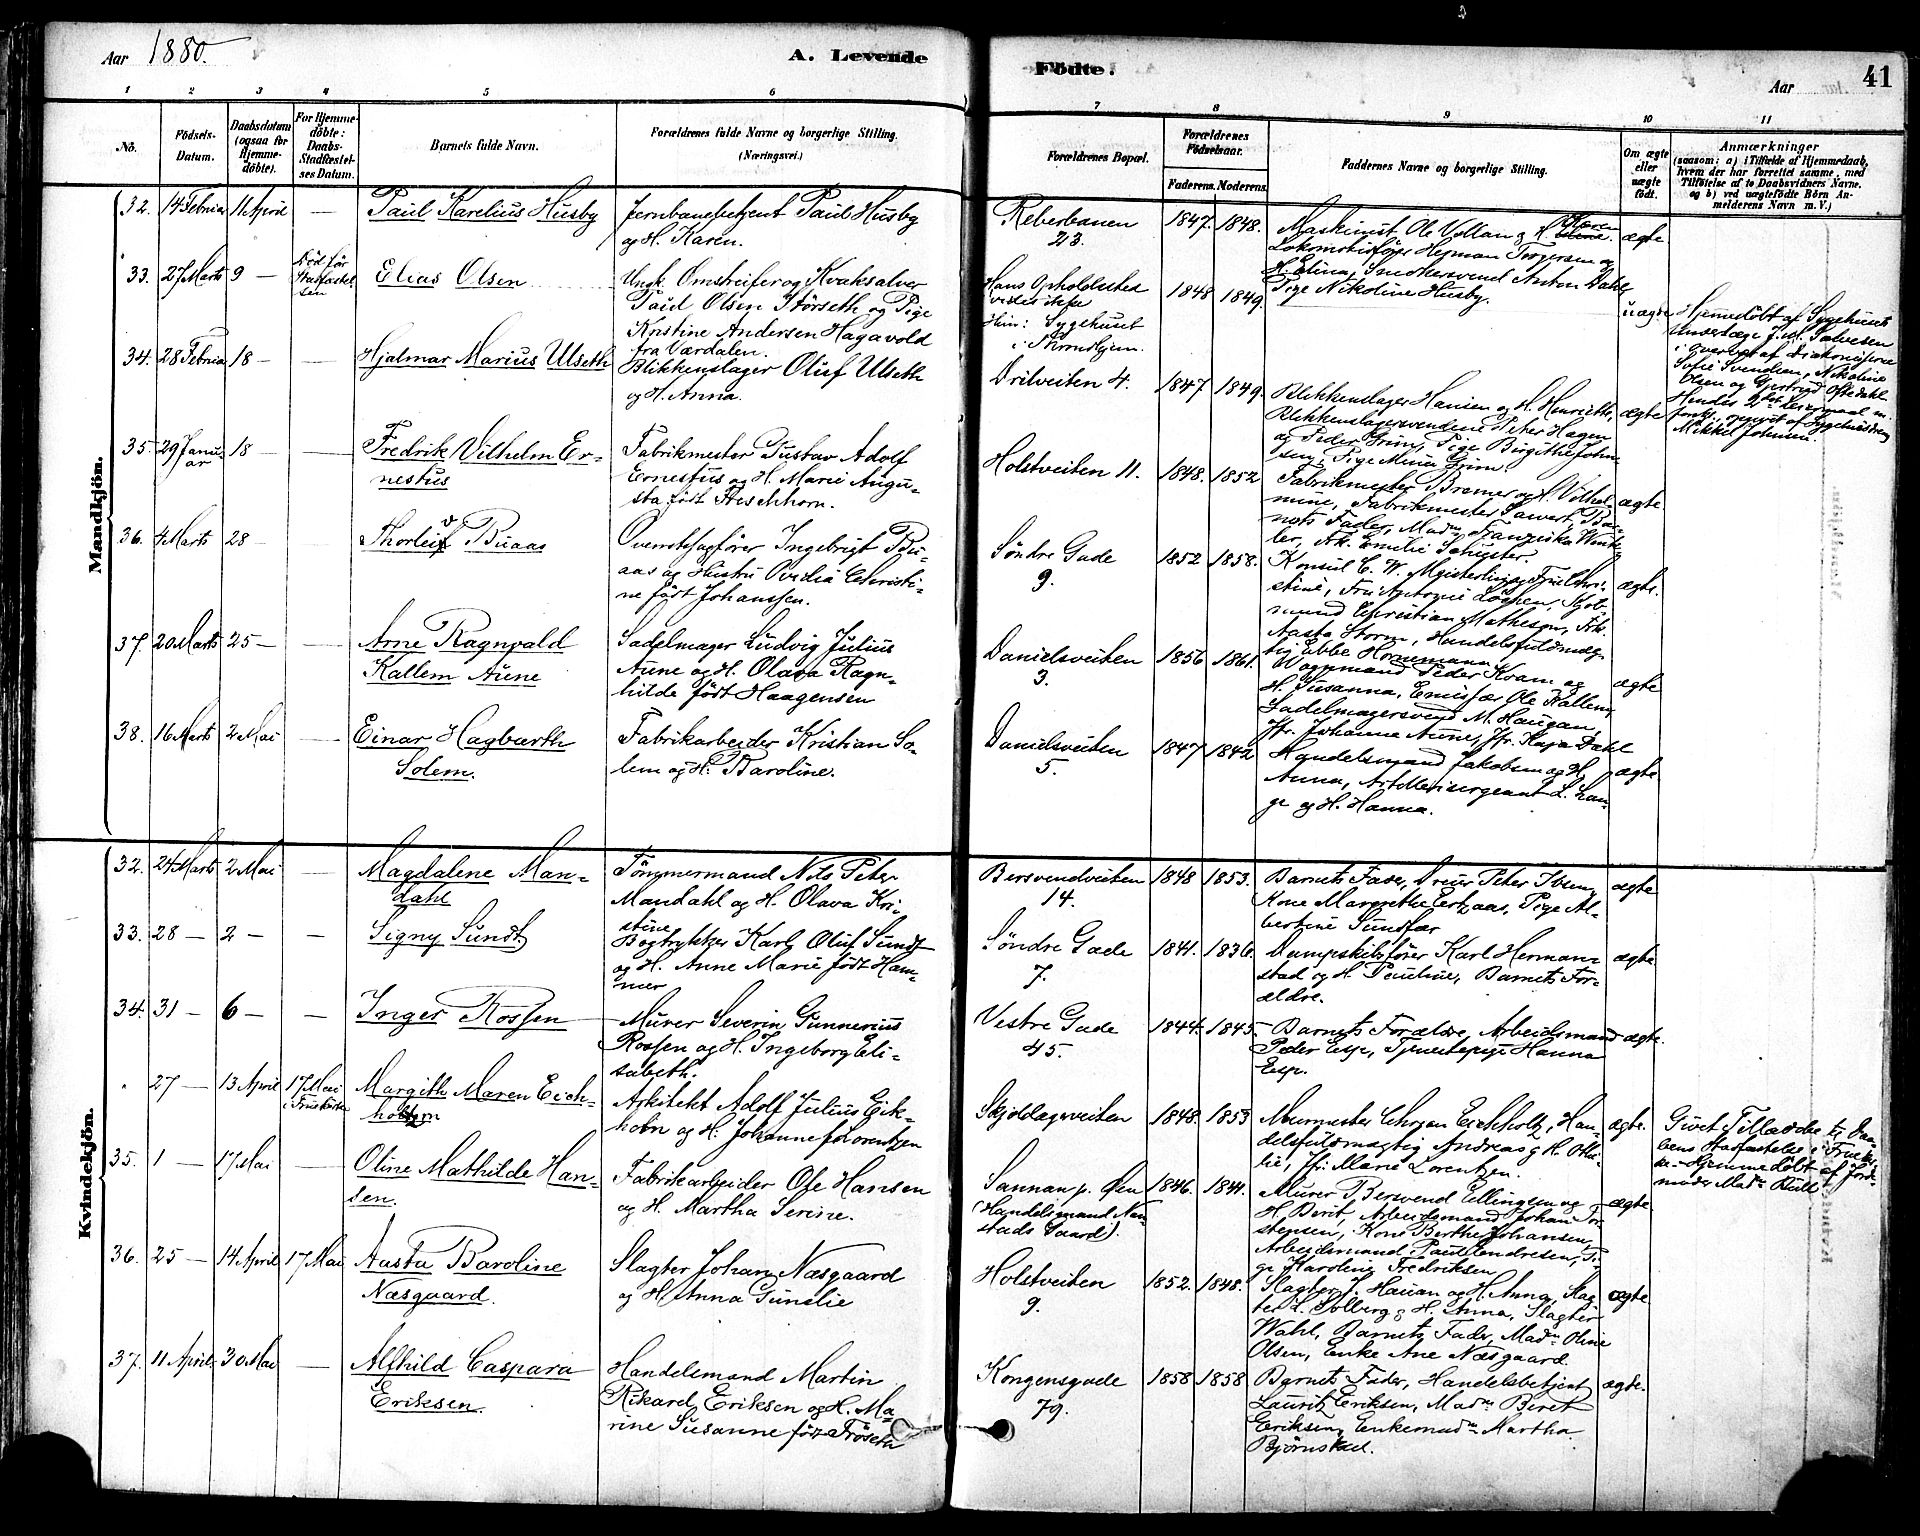 Aar 1880.
A. Levende
Födte.
Aar
41
1 2 3 4 5 6
7 8 9 10 11
No.
Födsels-
Datum.
Daabsdatum
(ogsaa for
Hjemme-
döbte).
For Hjemme-
döbte:
Daabs-
Stadfæstel-
ses Datum.
Barnets fulde Navn.
Forældrenes fulde Navne og borgerlige Stilling.
(Næringsvei.)
Forældrenes Bopæl.
Forældrenes
Födselsaar.
Faderens. Moderens.
Faddernes Navne og borgerlige Stilling.
Om ægte
eller
uægte
födt.
Anmærkninger
(saasom: a) i Tilfælde af Hjemmedaab,
hvem der har forrettet samme, med
Tilföielse af to Daabsvidners Navne,
og b) ved uægtefödte Börn An-
melderens Navn m. V.)
Mandkjön.
32. 14 Februar 11 April — Paul Karelius Husby
Jernbanebetjent Paul Husby
og H. Karen.
Reberbanen
23.
1847. 1848.
Maskinist Ole Vollan & H. Karen
Lokomotivfører Herman Torgersen og
H. Elina, Smedesvend Anton Dahl,
Pige Nikoline Husby.
ægte
33. 27 Marts 9 —
Død før
Stadfæstel
sen
Elias Olsen
Ungk. Omstreifer og Kvaksalver
Paul Olsen Störseth og Pige
Kristine Andersen Hagavold
fra Værdalen.
Hans Opholdssted
vides ikke
Hun: Sygehuset
i Trondhjem.
1848 1849.
uægte
Hjemmedöbt af Sygehusets
Underlæge J. M. Salvesen
i overvær af Diakonisserne
Sofie Svendsen, Nikoline
Olsen og Gjertrud Oftedahl.
Hendes 2det Leiermaal m.
forskj. opgivet af Sygehusbest.
Mikkel Johnsen.
34. 28 Februar 18 — — Hjalmar Marius Ulseth
Blikkenslager Oluf Ulseth
og H. Anna.
Dritveiten 4.
1847 1849.
Blikkenslager Hansen og H. Henriette,
Blikkenslagersvendene Peter Hagen
og Peder Grim, Pige Birgithe John
sen, Pige Mina Grim.
ægte
35. 29 Janu-
ar 18 — — Fredrik Vilhelm Er-
nestus
Fabrikmester Gustav Adolf
Ernestus og H. Marie Augu-
sta født Heschhorn.
Holstveiten 11.
1848. 1852
Fabrikmester Bremer og H. Vilhel-
mine, Fabrikmester Sawert, Bar-
nets Fader, Madm Franziska Wink-
ler, Frk. Emilie Schuster.
ægte
36. 4 Marts 28 — — Thorleiv Buaas
Overretssagfører Ingebrigt Bu-
aas og Hustru Ovidia Christi-
ne født Johanssen.
Søndre Gade
9.
1852 1858.
Konsul C. W. Meisterlin og Frue Chri-
stine, Fru Antonie Løchen, Kjøb-
mand Christian Matheson, Frk.
Aasta Storm, Handelsfuldmæg-
tig Ebbe Hornemann
ægte.
37. 20 Marts 25 — — Arne Ragnvald
Kallem Aune
Sadelmager Ludvig Julius
Aune og H. Olava Ragn-
hilde født Haagensen
Danielsveiten
3.
1856 1861.
Vognmand Peder Kvam og
H. Susanna, Ole Kallem,
Sadelmagersvend M. Haugan,
Jfr. Johanna Aune, Jfr. Kaja Dahl
ægte
38. 16 Marts 2 Mai — Einar Hagbarth
Solem.
Fabrikarbeider Kristian So-
lem og H. Baroline.
Danielsveiten
5.
1847 1842
Handelsmand Jakobsen og H.
Anna, Artillerisergeant L. Lan-
ge og H. Hanna.
ægte
Kvindekjön.
32. 24 Marts 2 Mai — Magdalene Man-
dahl
Tömmermand Nils Peter
Mandahl og H. Olava Kri-
stine
Bersvendveiten
14.
1848 1853.
Barnets Fader, Dreier Peter Ibsen,
Kone Margrethe Eerhaas, Pige Al-
bertine Sundfær
ægte
33. 28 — 2 — — Signy Sundt
Bogtrykker Karl Oluf Sundt
og H. Anne Marie født Ham-
mer
Søndre Gade
7.
1841. 1836.
Dampskibsfører Karl Herman-
stad og H. Pauline, Barnets For-
ældre.
ægte.
34. 31 — 6 — — Inger Rossen
Murer Severin Gunnerius
Rossen og H. Ingeborg Eli-
sabeth.
Vestre Gade
45.
1844. 1845.
Barnets Forældre, Arbeidsmand
Peder Esp, Tjenestepige Hanna
Esp.
ægte.
27 — 13 April 17 Mai
i Fruekirke
Margith Maren Eich-
holm
Arkitekt Adolf Julius Eik-
holm og H. Johanne f. Lorentzen
Skjoldagerveiten
1848. 1853
Murmester Chrjan Eichholtz, Han-
delsfuldmægtig Andreas og H. Otti-
lie, Jfr. Marie Lorentzen.
ægte.
Givet Tilladelse til Daa-
bens Stadfæstelse i Fruekir-
ke. Hjemmedöbt af Jord-
moder Madm Bull
35. 1 — 17 Mai Oline Mathilde Han-
sen.
Fabrikarbeider Ole Hansen
og H. Martha Serine.
Sannan p. Øen
(Handelsmand Nan-
stads Gaard).
1846. 1844.
Murer Bersvend Ellingsen og
H. Berit, Arbeidsmand Johan Tor-
stensen, Kone Berthe Johansen,
Arbeidsmand Paul Endresen, Pi-
ge Karoline Fredriksen
ægte.
36. 25 — 14 April 17 Mai Aasta Baroline
Næsgaard.
Slagter Johan Næsgaard
og H. Anna Gunelie
Holstveiten
9.
1852. 1848.
Slagter J. Hauan og H. Anna, Slag
ter L. Solberg & H. Anna, Slagter
Wahl, Barnets Fader, Madm Oline
Olsen, Enke Ane Næsgaard.
ægte.
37. 11 April 30 Mai — Alfhild Caspara
Eriksen.
Handelsmand Martin
Rikard Eriksen og H. Ma-
rine Susanne født Fröseth
Kongensgade
79.
1858 1858
Barnets Fader, Handelsbetjent
Lauritz Eriksen, Madm Beret
Eriksen, Enkemadm Martha
Bjørnstad.
ægte.